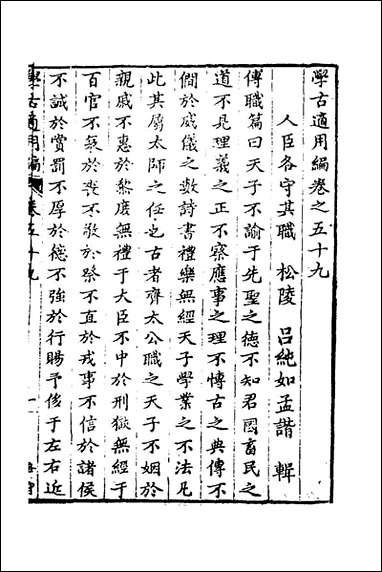 學古適用編卷之五十九
人臣各守其職 松陵 呂純如孟諧 輯
傳職篇曰天子不諭于先聖之德不知君國畜民之
道不見理義之正不察應事之理不博古之典傳不
僩於威儀之數詩書禮樂無經天子學業之不法凡
此其屬太師之任也古者齊太公職之天子不姻於
親戚不惠於黎庶無禮于大臣不中於刑獄無經于
百官不哀於喪不敬於祭不直於戎事不信於諸侯
不誠於賞罰不厚於德不強於行賜予侈于左右近
學古適用編 卷五十九 一